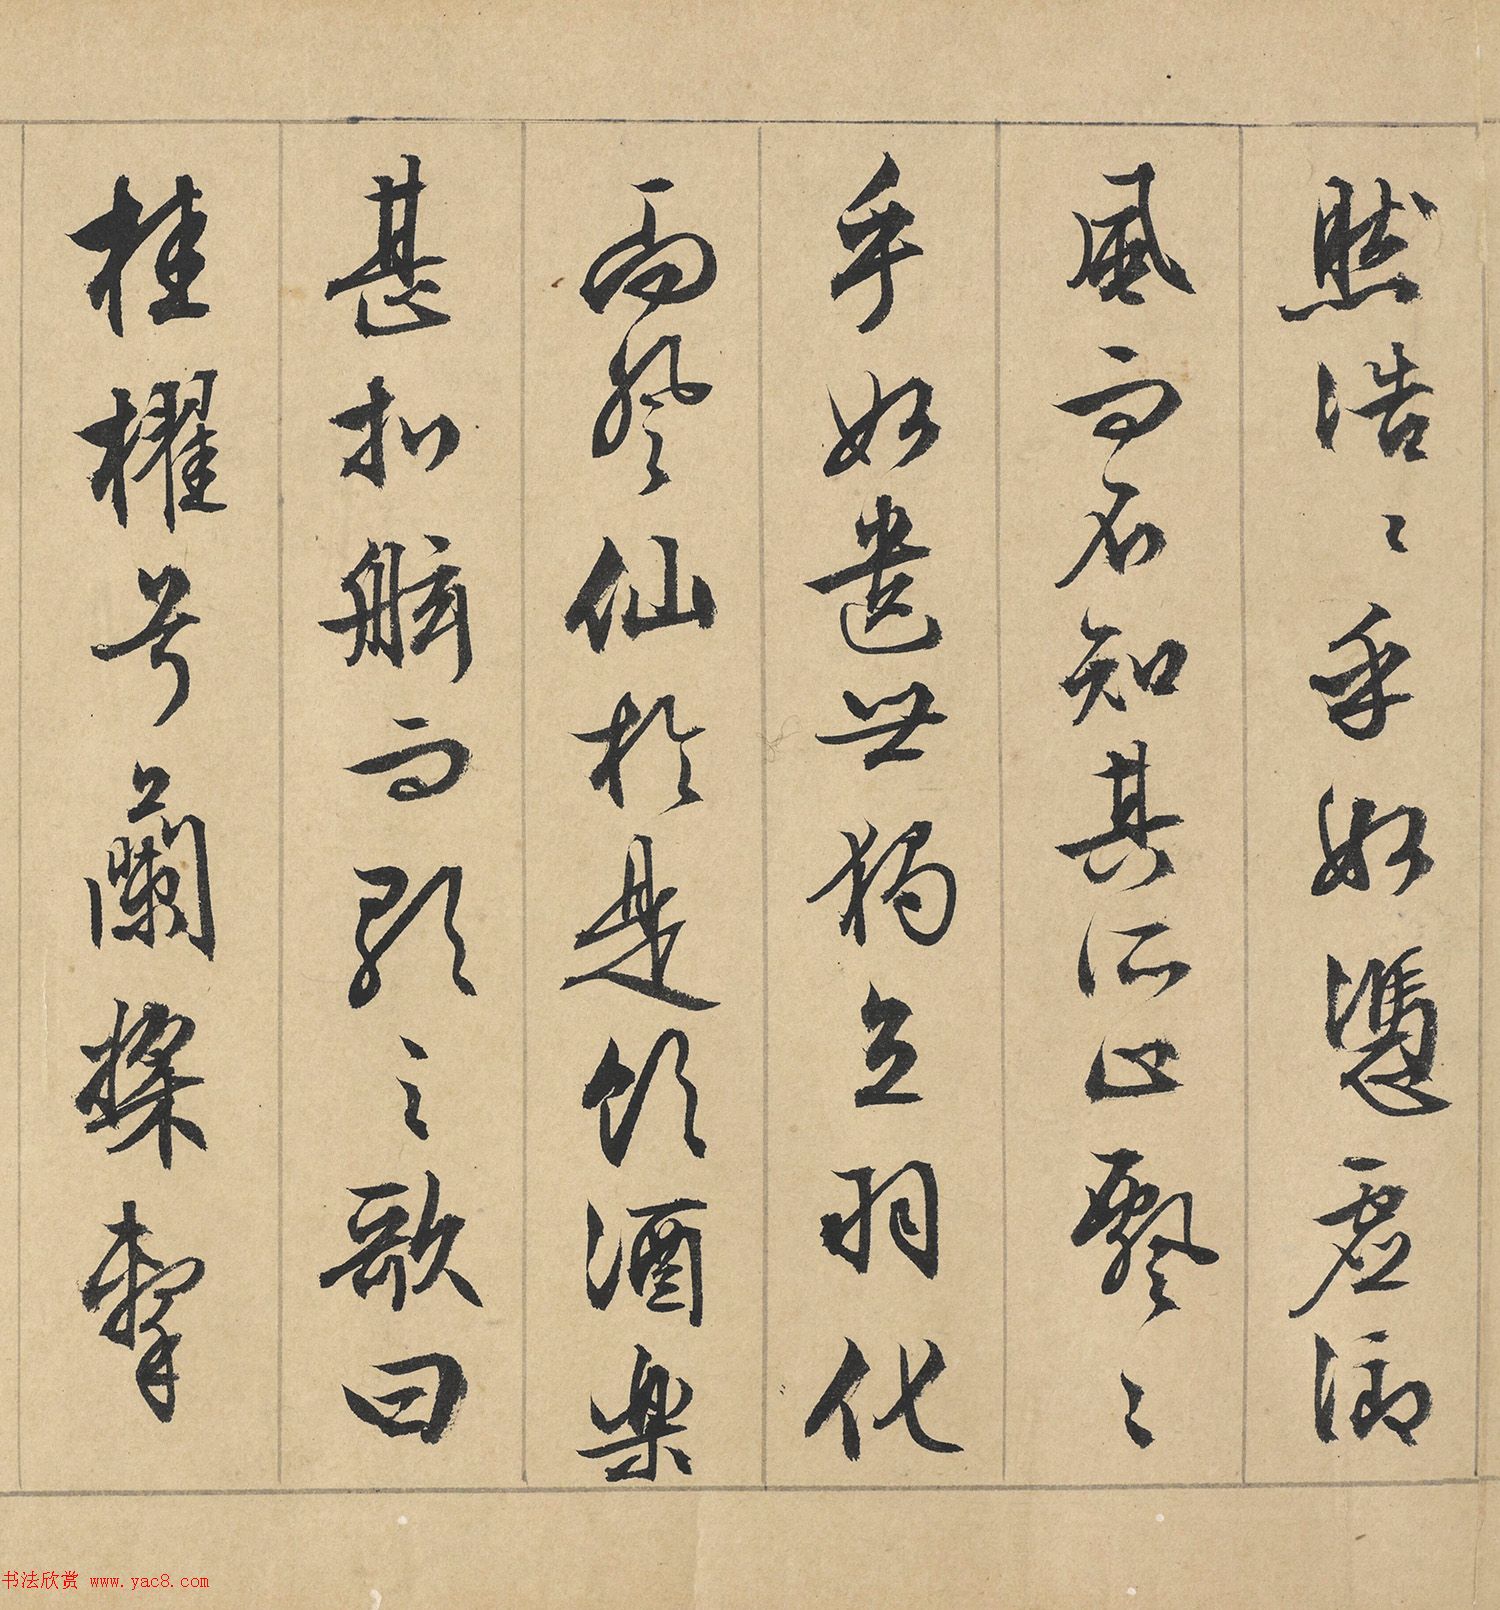 然浩〻乎如憑虛御
風而不知其所止飄〻
乎如遺世獨立羽化
而登仙於是飲酒樂
甚扣舷而歌之歌曰
桂櫂兮蘭槳擊
书法欣赏 www.yac8.com